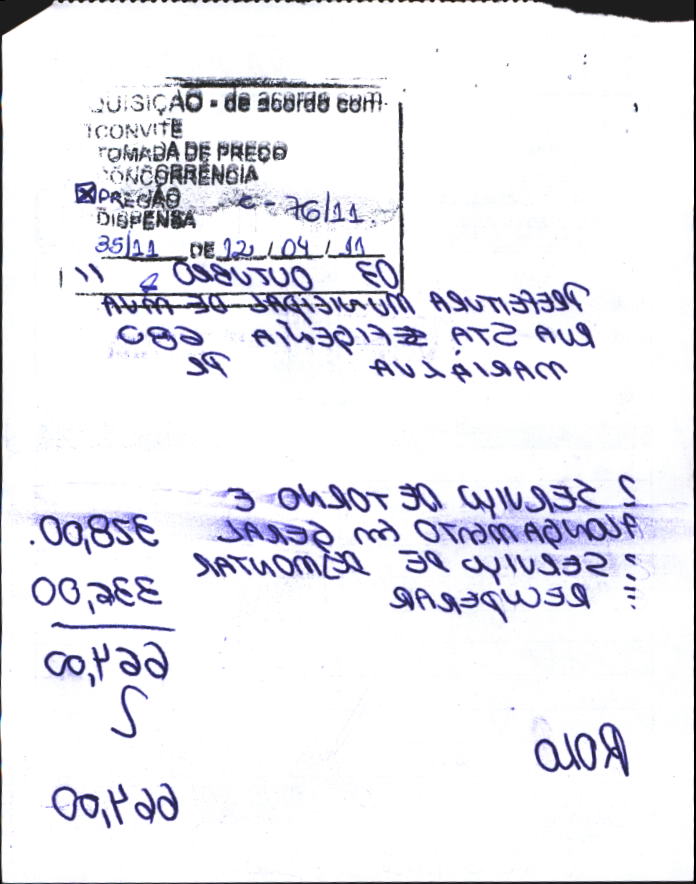 QUISIÇÃO - de acordo com
CONVITE
TOMADA DE PREÇO
CONCORRÊNCIA
PREGÃO
DISPENSA
76/11
35/11 DE 12 / 04 / 11
03 OUTUBRO 11
PREFEITURA MUNICIPAL DE
RUA STA EFIGENIA 680
MARIALVA PR
2 SERVIÇO DE TORNO E
ALONGAMENTO EM GERAL 328,00
SERVIÇO DE DESMONTAR
RECUPERAR 336,00
664,00
ROLO
664,00